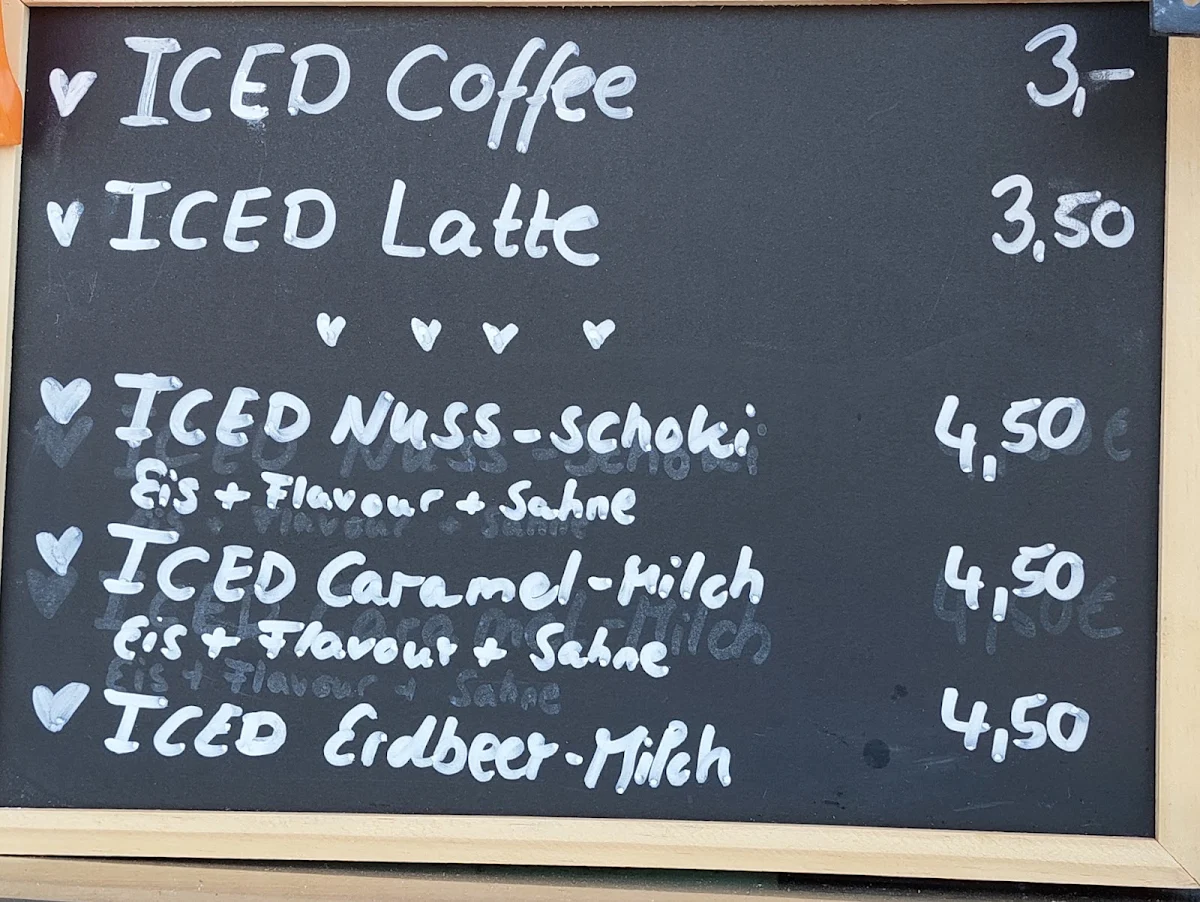 ICED Coffee 3,-
ICED Latte 3,50
ICED Nuss-Schoki 4,50
Eis + Flavour + Sahne
ICED Caramel-Milch 4,50
Eis + Flavour + Sahne
ICED Erdbeer-Milch 4,50